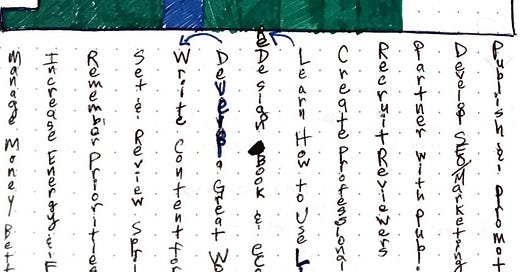 Manage Money Bett
Increase Energy & F
Remember Priorities
Set & Review Spri
Write Content for
Develop Great Wo
ReDesign Book & eCo
Learn How to Use L
Create Professional
Recruit Reviewers
Partner with Publi
Develop SEO/Marketing
Publish & Promot